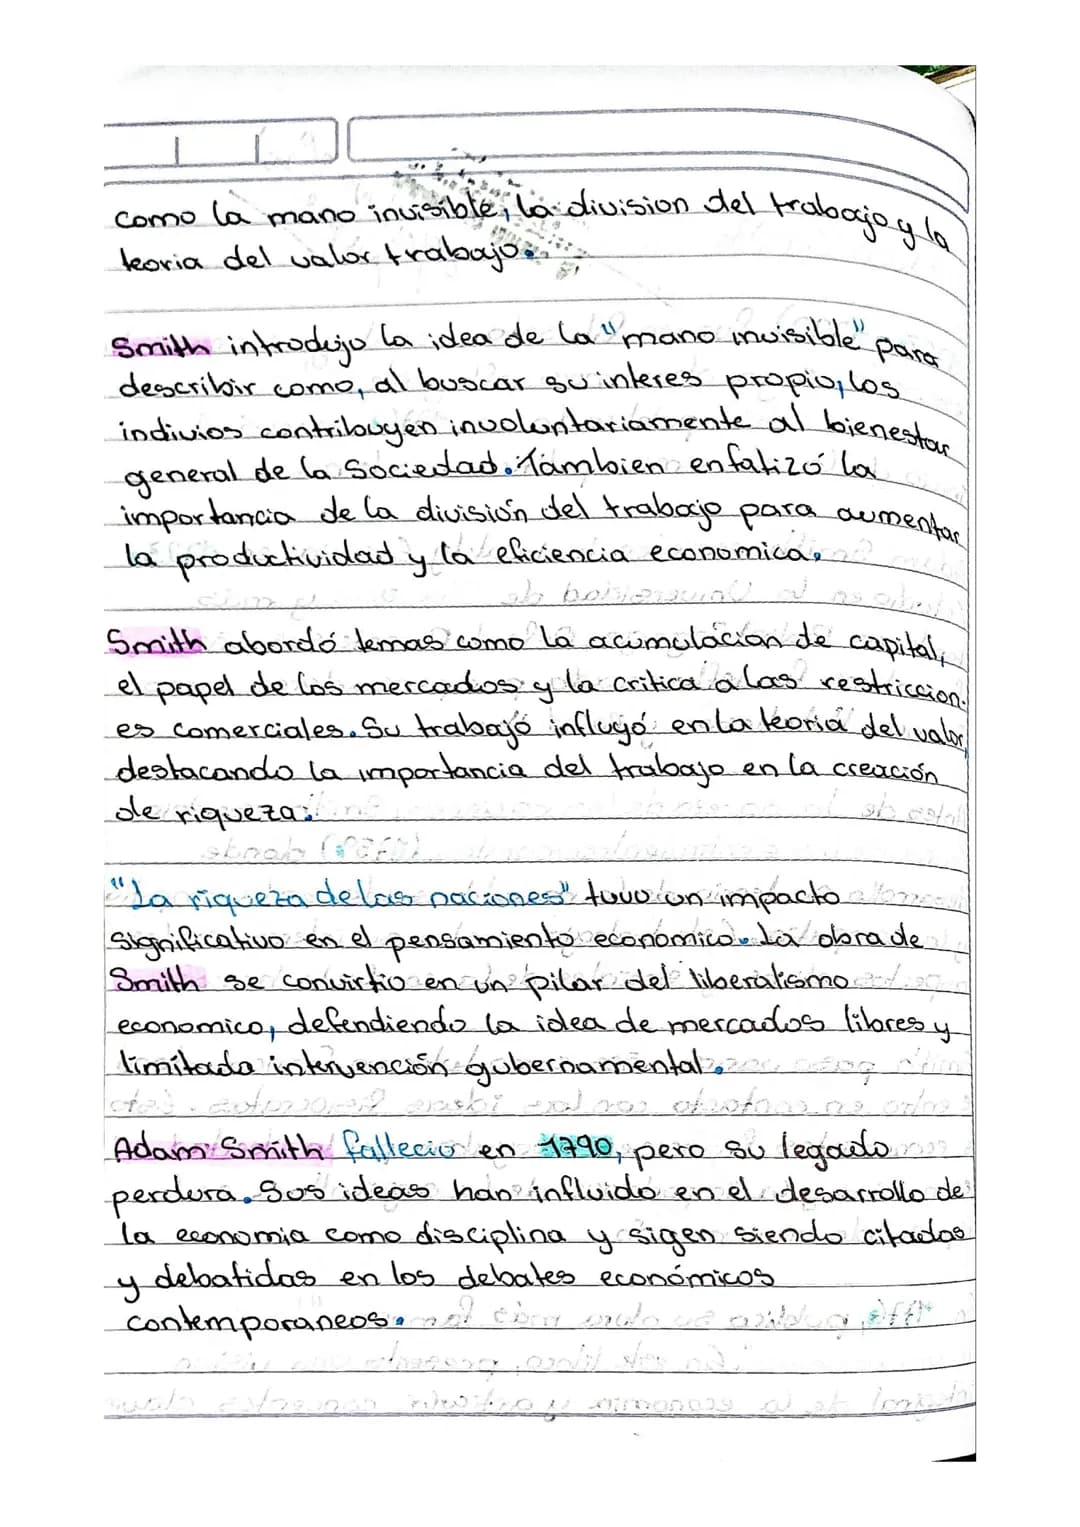 como la mano invisible, la division del trabajo y la
teoria del valor trabajo.
Smith introdujo la idea de la "mano invisible" para
describir como, al buscar su interes propio, los
indivios contribuyen involuntariamente al bienestar
general de la Sociedad. Tambien enfatizó la
importancia de la división del trabajo para aumentar
la productividad y la eficiencia economica.
Smith abordó temas como la acumulacion de capital,
el papel de los mercados y la critica a las restriccion-
es comerciales. Su trabajo influyó en la teoria del valor,
destacando la importancia del trabajo en la creación
de riqueza.
"La riqueza de las naciones" tuvo un impacto
significativo en el pensamiento económico. La obra de
Smith se convirtio en un pilar del liberalismo
economico, defendiendo la idea de mercados libres y
limitada intervención gubernamental.
Adam Smith fallecio en 1790, pero su legado
perdura. Sus ideas han influido en el desarrollo de
la economia como disciplina y sigen siendo citadas
y debatidas en los debates económicos
contemporaneos.